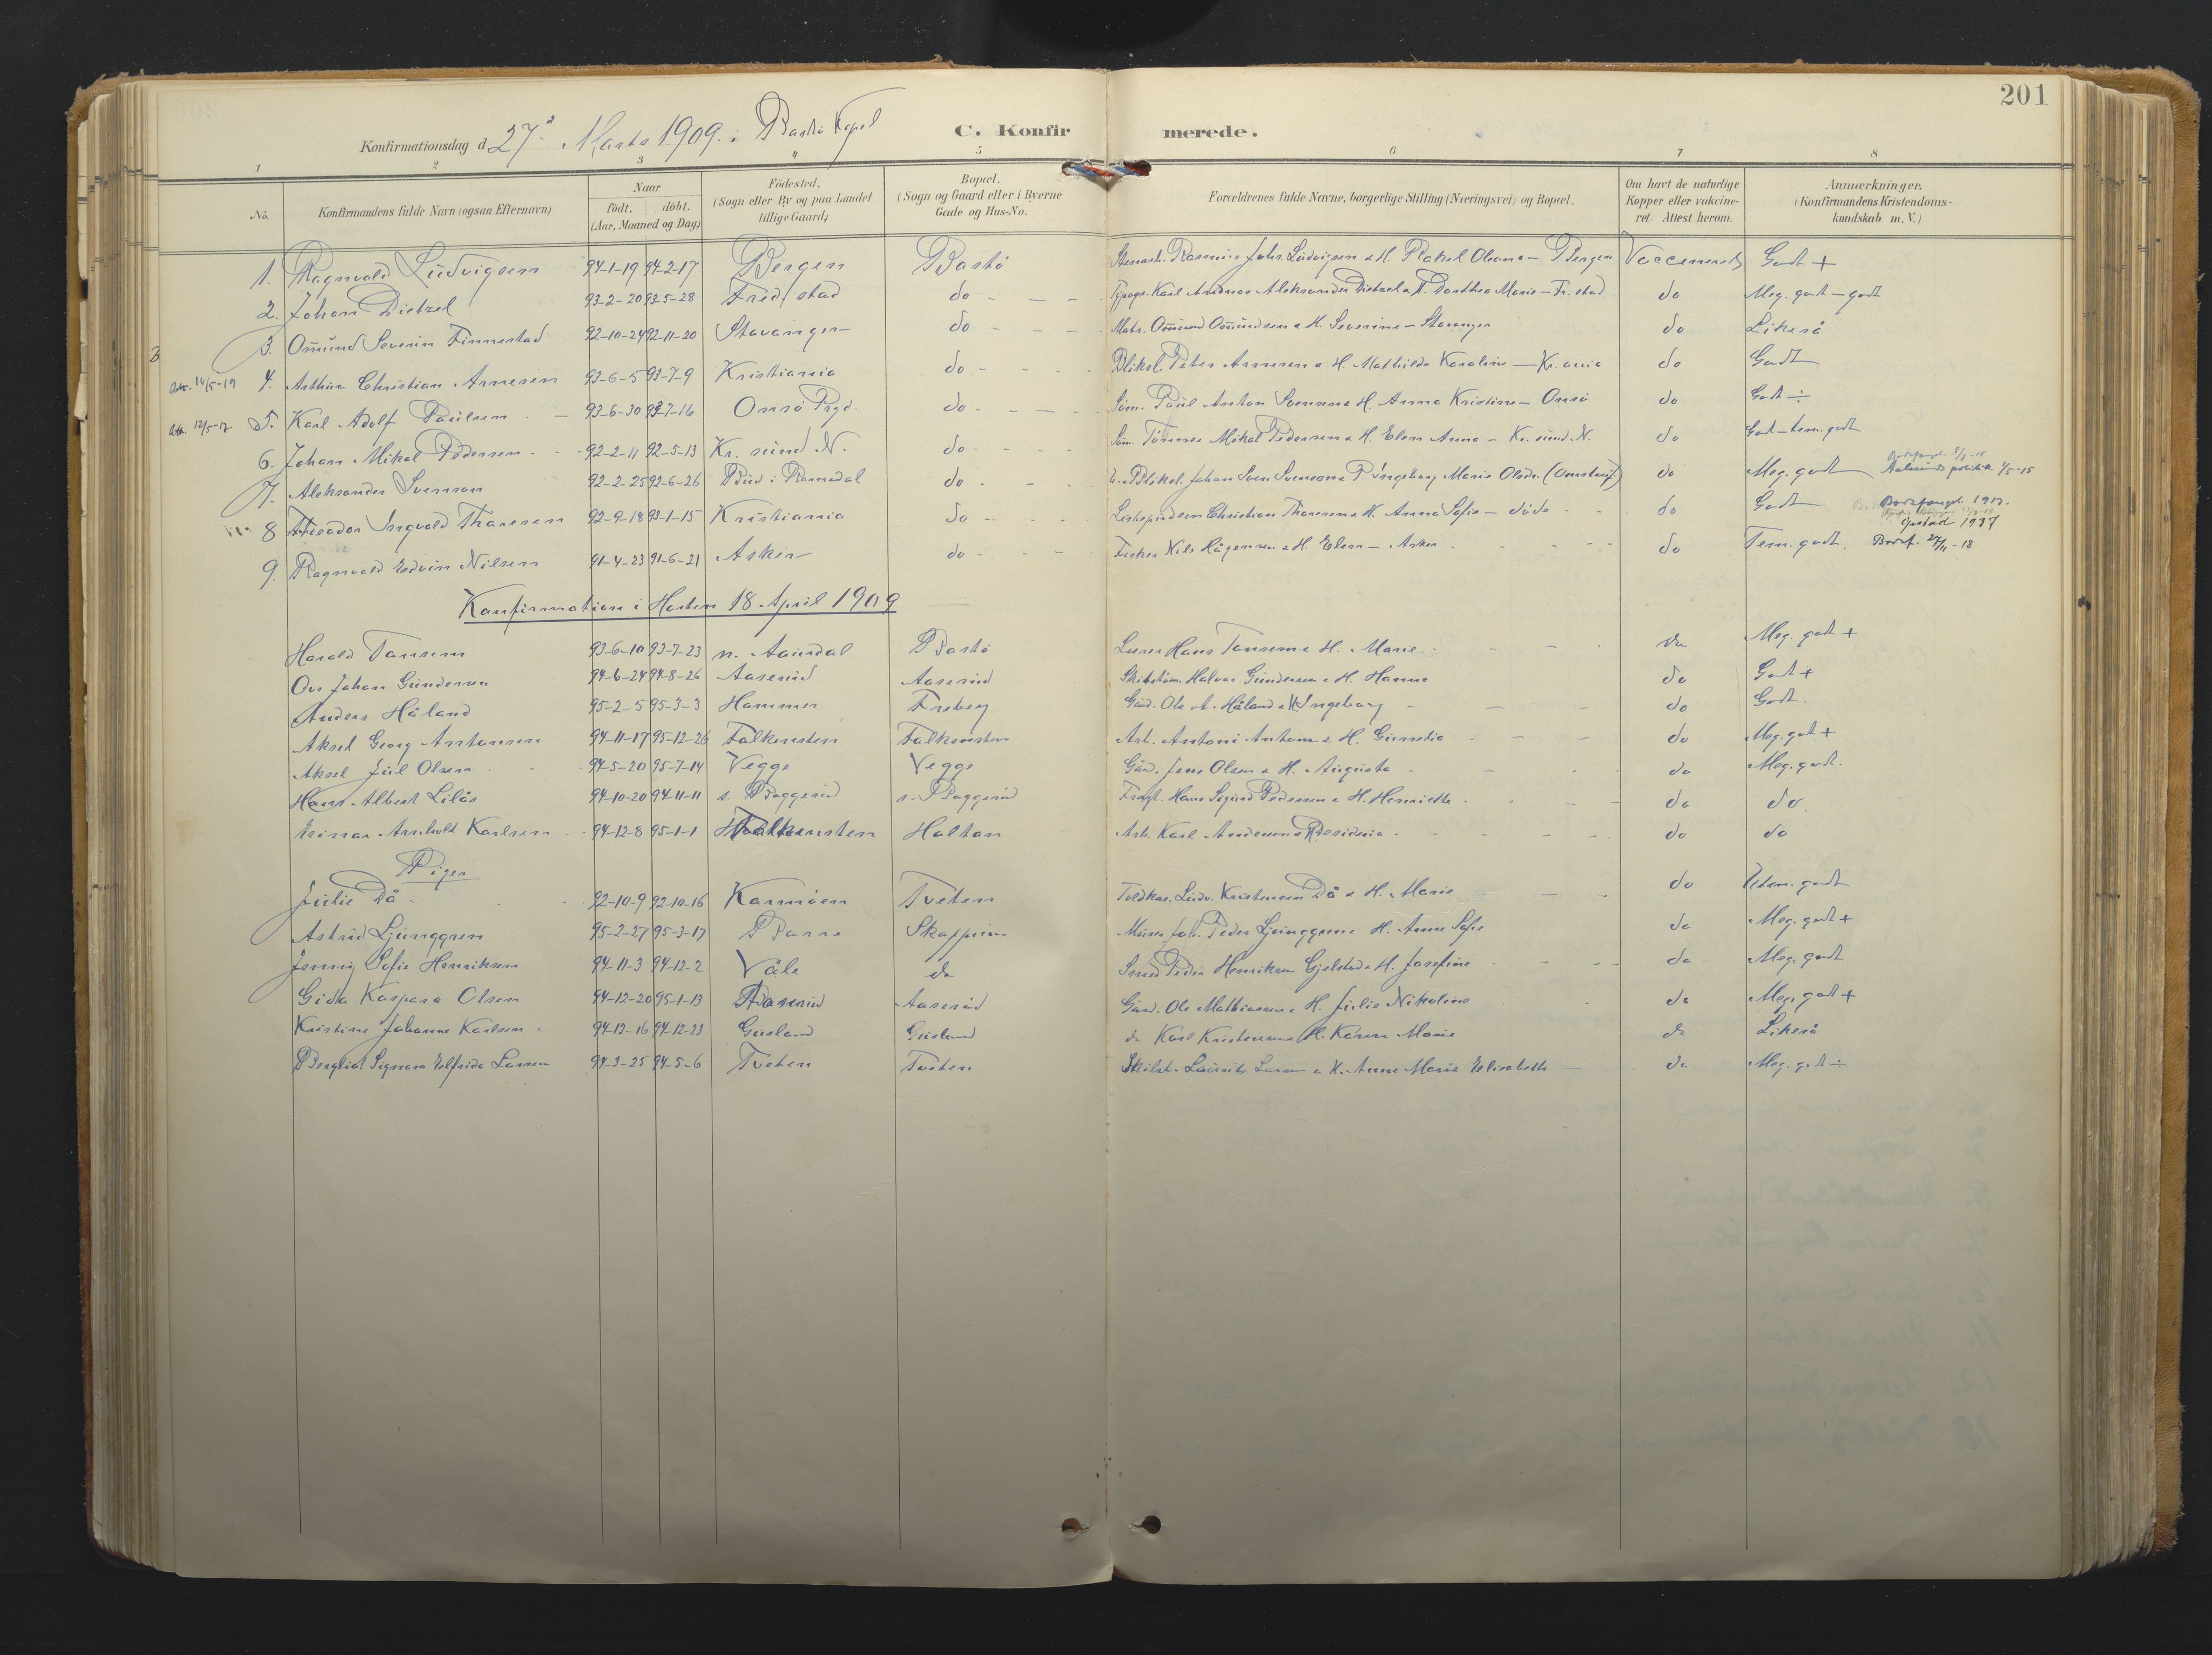 201
Konfirmationsdag d. 27de Marts 1909. i Bastö Kapel C. Konfirmerede.
1 2 3 4 5 6 7 8
No. Konfirmandens fulde Navn (ogsaa Efternavn) Naar født. døbt. (Aar, Maaned og Dag) Födested. (Sogn eller By og paa Landet tillige Gaard) Bopæl. (Sogn og Gaard eller i Byerne Gade og Hus-No. Forældrenes fulde Navne, borgerlige Stilling (Næringsvei) og Bopæl. Om havt de naturlige Kopper eller vakcineret. Attest herom. Anmærkninger. (Konfirmandens Kristendomskundskab m. V.)
1. Ragnvald Ludvigsen 94-1-19 94-2-17 Bergen Bastö Rasmus Johs. Ludvigsen & H. Rakel Oleana - Bergen Vaccineret Godt +
2. Johan Dietzel 93-2-20 93-5-28 Fred.stad do Typogr. Karl Andreas Aleksander Dietzel & H. Dorthea Marie - Fr.stad do Meg. godt - godt
3. Omund Severin Finnestad 92-10-24 92-11-20 Stavanger do Matr. Omund Omundsen & H. Severine - Stavanger do Likeså
Att. 14/5-19 4. Arthur Christian Arnesen 93-6-5 93-7-9 Kristiania do Bliksl. Peter Arnesen & H. Mathilde Karoline - Kr.ania do Godt
Att. 12/5-17 5. Karl Adolf Paulsen 93-6-30 93-7-16 Onsö Prgd. do Söm. Paul Anton Svensen & H. Anna Kristine - Onsö do Godt ÷
6. Johan Mikal Pedersen 92-2-11 92-5-13 Kr.sund N. do Söm. Tönnes Mikal Pedersen & H. Elen Anna - Kr.sund N. do God - tem. godt
7. Aleksander Svenson 92-2-25 92-6-26 Bud i Romsdal do Bliksl. Johan Sven Svenson & P. Ingeborg Marie Olsdr. do Meg. godt Aalesunds politik. 4/5-15
8 Theodor Ingvald Thoresen 92-9-18 93-1-15 Kristiania do Christian Thoresen & H. Anna Sofie - döde do Godt Bodsfængel. 1913. Gjestad 1937
9. Ragnvald Edvin Nilsen 91-4-23 91-6-21 Asker do Fisker Nils Hågensen & H. Elen - Asker do Tem. godt. Bodsf. 27/11-13
Konfirmation i Horten 18 April 1909
Harald Tansem 93-6-10 93-7-23 n. Aurdal Bastö Lærer Hans Tansem & H. Marie do Meg. godt +
Ove Johan Gundersen 94-6-24 94-8-26 Aaserud Aaserud Skibstöm. Halvor Gundersen & H. Hanna do Godt +
Anders Håland 95-2-5 95-3-3 Hammer Freberg Gaard. Ole A. Håland & H. Ingeborg do Godt.
Aksel Georg Antonsen 94-11-17 95-12-26 Falkensten Falkensten Arb. Antoni Antons. & H. do Meg. godt +
Aksel Juul Olsen 94-5-20 95-7-14 Vegge Vegge Gård. Jens Olsen & H. Augusta do Meg. godt.
Hans Albert Lilås 94-10-20 94-11-11 s. Baggerud s. Baggerud Hans Sigurd Pedersen & H. Henriette do do.
Einar Arnholt Karlsen 94-12-8 95-1-1 Falkensten Holtan Arb. Karl Andersen & do do
Piger
Julie Då 92-10-9 92-10-16 Karmöen Tveten Toldkas. Ludv. Kristensen Då & H. Marie do Udm. godt
Astrid Ljunggren 95-2-27 95-3-17 Borre Skoppum Murer Joh. Peder Ljunggren & H. Anne Sofie do Meg. godt +
Jenny Sofie Henriksen 94-11-3 94-12-2 Våle do Smed Peder Henriksen Gjelstad & H. Josefine do Meg. godt
Gida Kaspara Olsen 94-12-20 95-1-13 Aaserud Aaserud Gård. Ole Mathiassen & H. Julie Nikoline do Meg. godt +
Kristine Johanne Karlsen 94-12-16 94-12-23 Gusland Gusland do Karl Kristensen & H. Karen Marie do Likeså
Bergliot Signora Elfrida Larsen 94-3-25 94-5-6 Tveten Tveten Skibst. Laurits Larsen & H. Anne Marie Elisabeth do Meg. godt ÷